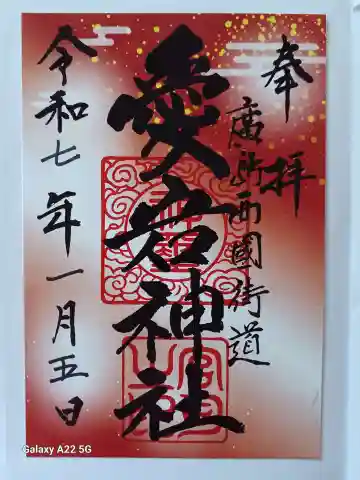 奉拝
西國街道
愛宕神社
令和七年一月五日
Galaxy A22 5G